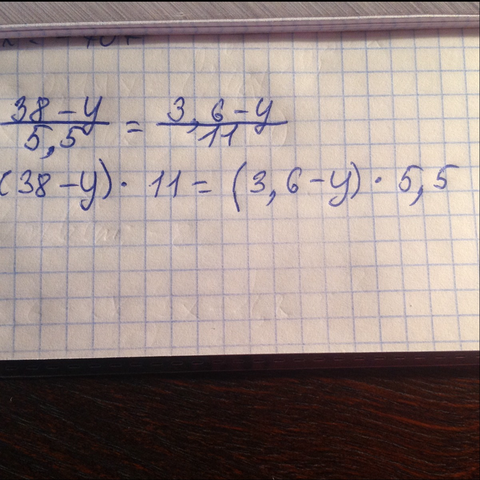 38 - y / 5,5 = 3,6 - y / 11
(38 - y) · 11 = (3,6 - y) · 5,5